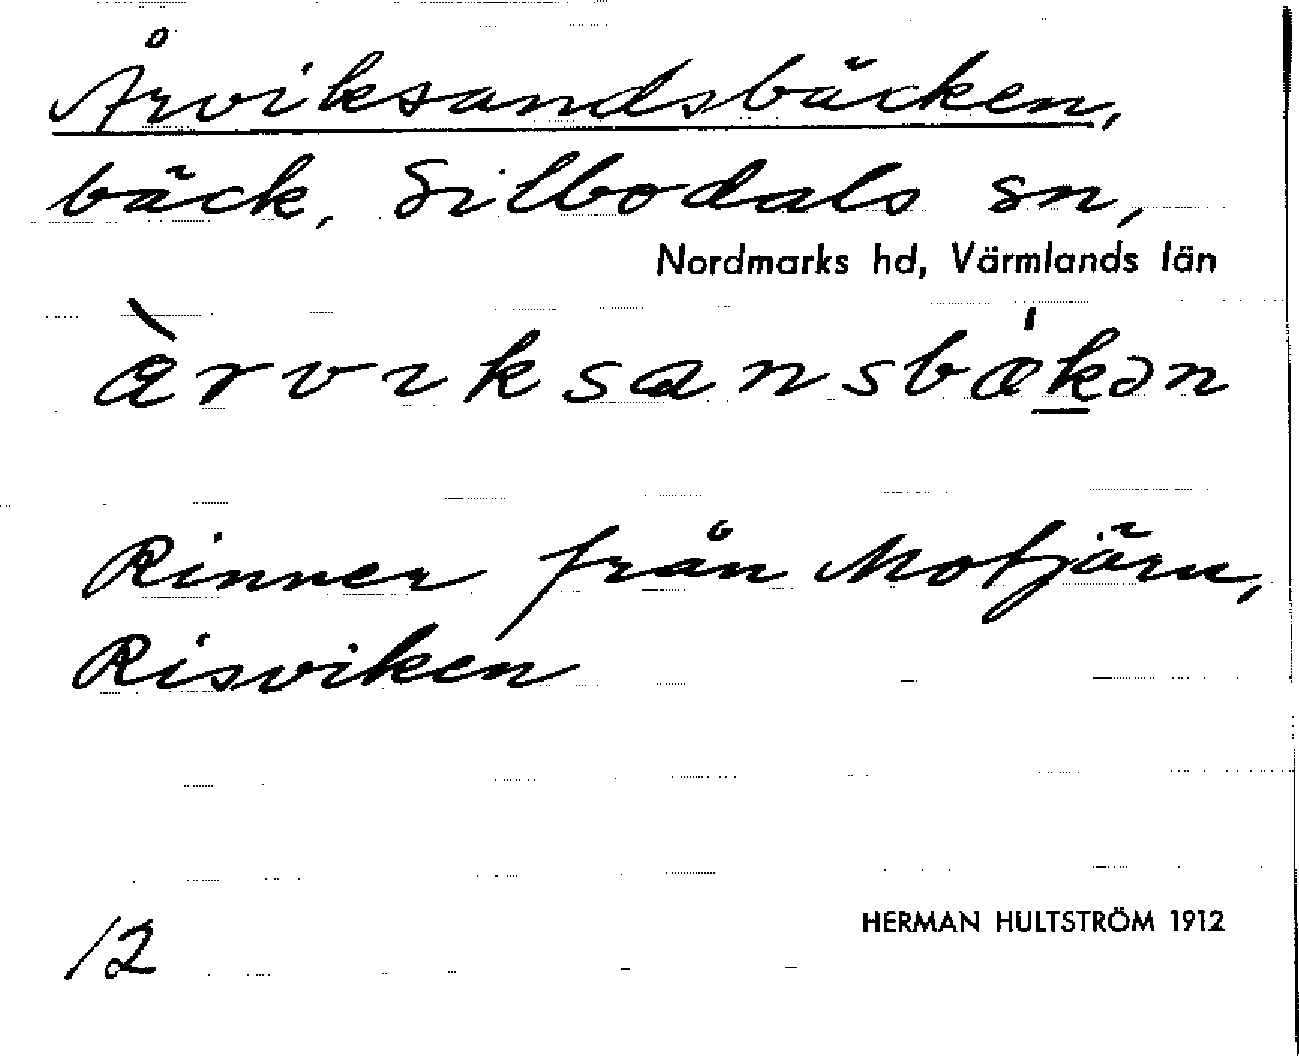 Årviksandsbäcken,
bäck, Silbodals sn,
Nordmarks hd, Värmlands län
àrvıksansbǽkən
Rinner från Motjärn,
Risviken
12
HERMAN HULTSTRÖM 1912